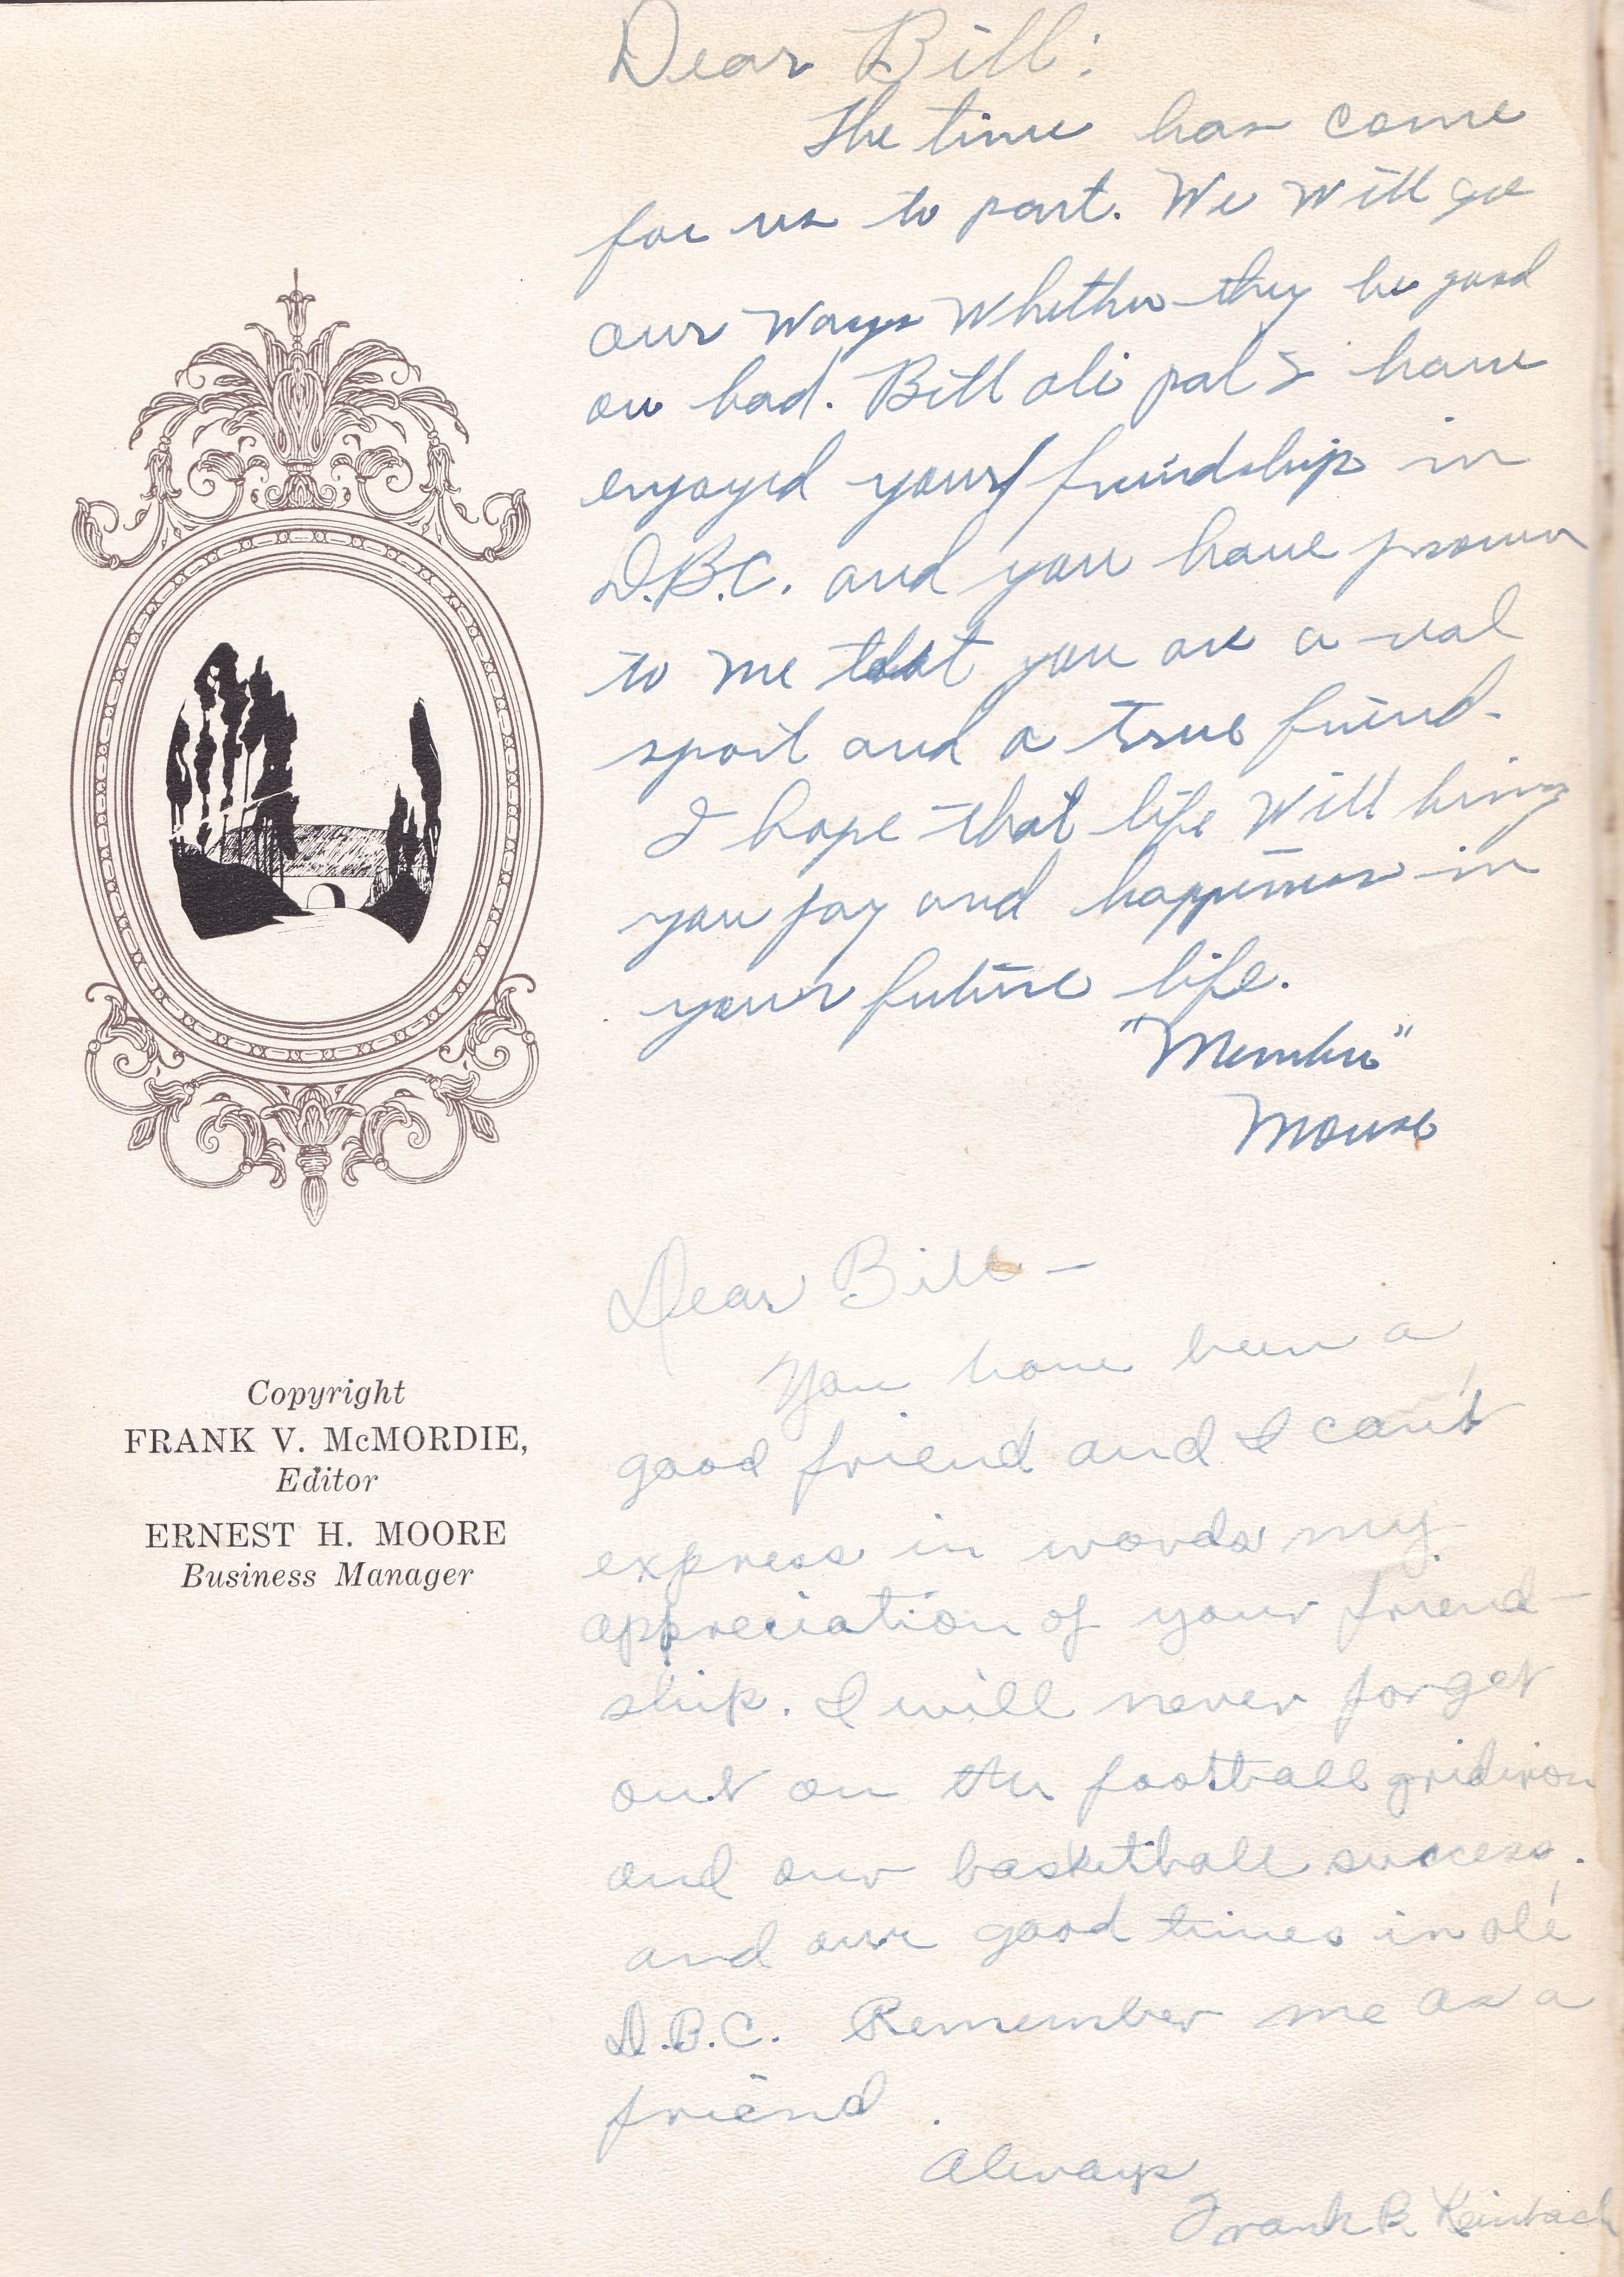 Dear Bill:
The time has come
for us to part. We will go
our ways whether they be good
or bad. Bill ole pal I have
enjoyed your friendship in
D.B.C. and you have proven
to me that you are a real
sport and a true friend.
I hope that life will bring
you joy and happiness in
your future life.
"Member"
Mouse
Dear Bill -
You have been a
good friend and I can't
express in words my
appreciation of your friend-
ship. I will never forget
out on the football gridiron
and our basketball success.
and our good times in ole'
D.B.C. Remember me as a
friend.
Always
Frank B.
Copyright
FRANK V. McMORDIE,
Editor
ERNEST H. MOORE
Business Manager